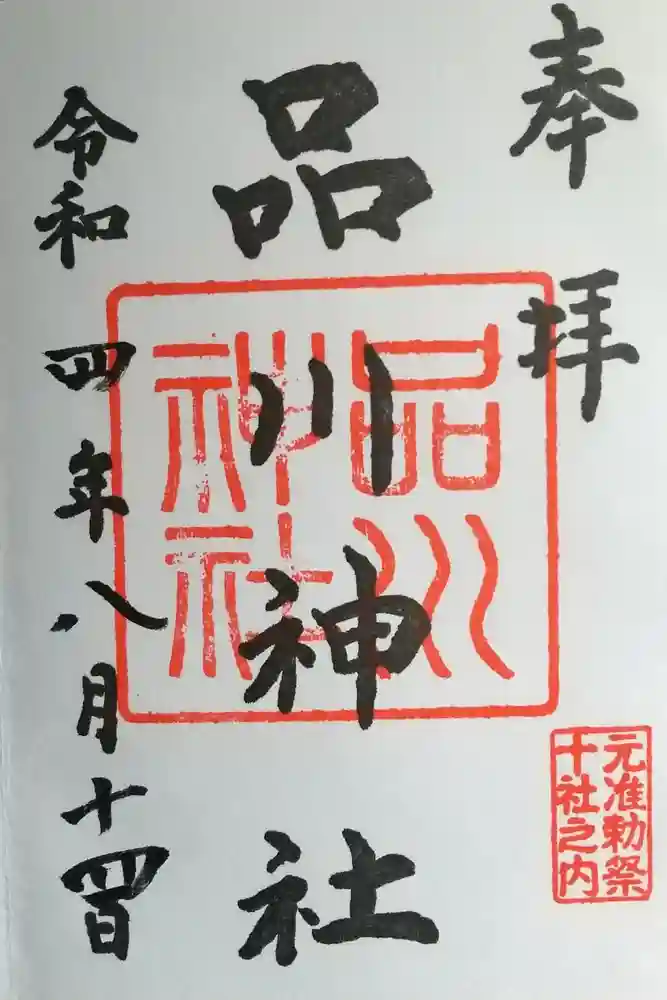 奉拝
品川神社
令和四年八月十四日
品川
神社
元准勅祭
十社之内